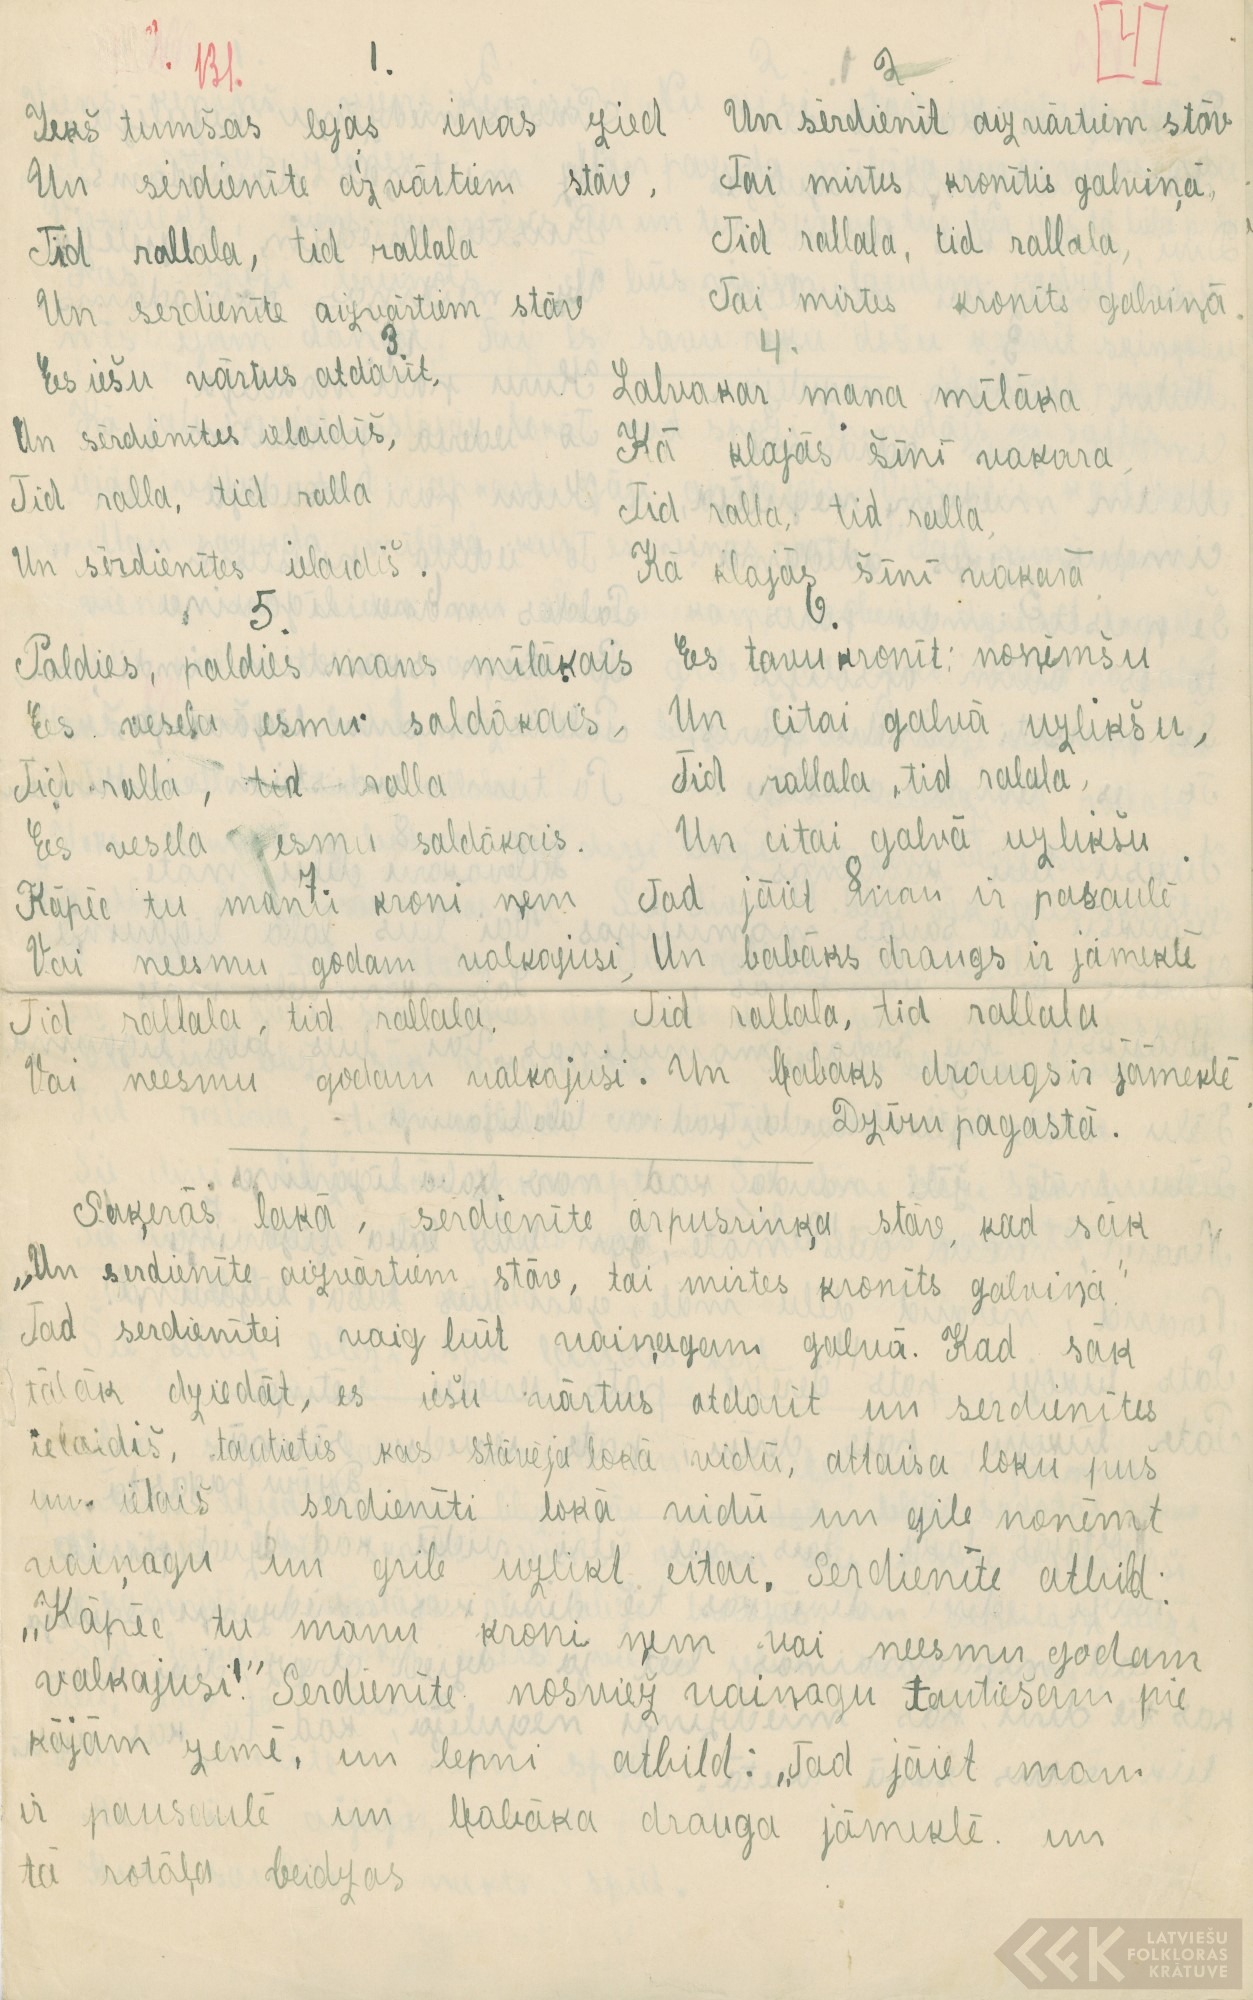 131.
[4]
1.
Iekš tumšas lejas ievas zied
Un sērdienīte aizvārtiem stāv,
Tid rallala, tid rallala
Un serdienīte aizvārtiem stāv
2
Un sērdienīt aizvārtiem stāv
Tai mirtes kronītis galviņā,
Tid rallala, tid rallala,
Tai mirtes kronīts galviņā.
3.
Es iešu vārtus atdarīt,
Un sērdienītes ielaidīš,
Tid ralla, tid ralla
Un sērdienītes ielaidīš.
4.
Labvakar mana mīlāka
Kā klajās šīnī vakara,
Tid ralla, tid ralla,
Kā klajās šīnī vakarā
5.
Paldies, paldies mans mīlākais
Es vesela esmu saldākais,
Tid ralla, tid ralla
Es vesela esmu saldākais.
6.
Es tavu kronīt: noņemšu
Un citai galvā uzlikšu,
Tid rallala, tid ralala,
Un citai galvā uzlikšu.
7.
Kāpēc tu manu kroni ņem
Vai neesmu godam valkajusi,
Tid rallala, tid rallala,
Vai neesmu godam valkajusi.
8
Tad jāiet man ir pasaulē
Un babāks draugs ir jāmeklē
Tid rallala, tid rallala
Un labāks draugs ir jāmeklē
Dzīru pagastā.
Saķerās lakā, serdienīte ārpusriņķa stāv, kad sāk
„Un serdienīte aizvārtiem stāv, tai mirtes kronīts galviņā"
Tad serdienītei vaig būt vaiņagam galvā. Kad sāk
tālāk dziedāt, es iešu vārtus atdarīt un serdienītes
ielaidīš, tautietis kas stāvēja lokā vidū, attaisa loku puš
un ielaiš serdienīti lokā vidū un gile nonēmt
vaiņagu un grile uzlikt citai. Serdienīte atbild:
„Kāpēc tu manu kroni ņem vai neesmu godam
valkajusi!" Serdienīte nosviež vaiņagu tautiešam pie
kājām zemē, un lepni atbild: „Tad jāiet man
ir pausaulē un labāka drauga jāmeklē. un
tā rotāļa beidzas
LATVIEŠU
FOLKLORAS
KRĀTUVE